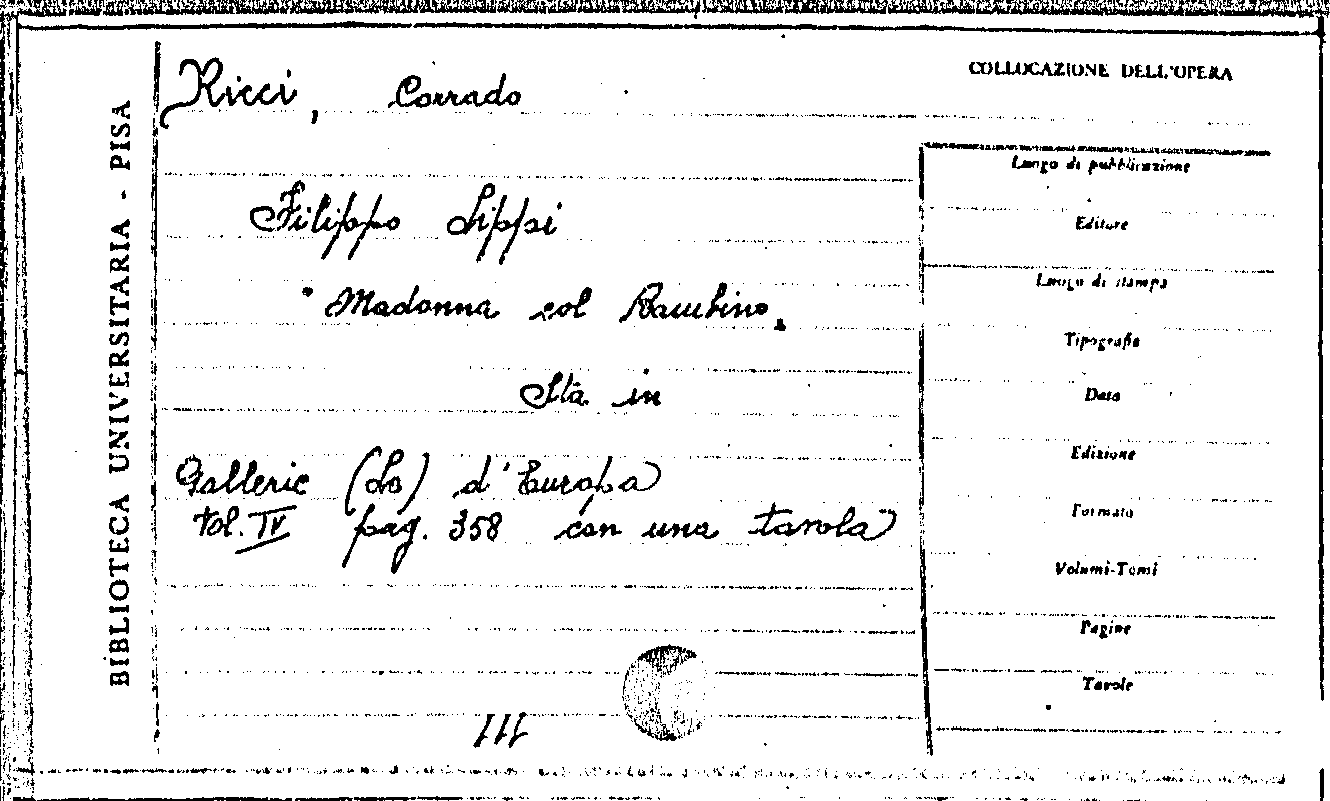 BIBLIOTECA UNIVERSITARIA - PISA
COLLOCAZIONE DELL'OPERA
Ricci, Corrado
Filippo Lippi
"Madonna col Bambino"
Sta in
Gallerie (Le) d'Europa
Vol. IV pag. 358 con una tavola
Luogo di pubblicazione
Editore
Luogo di stampa
Tipografia
Data
Edizione
Formato
Volumi-Tomi
Pagine
Tavole